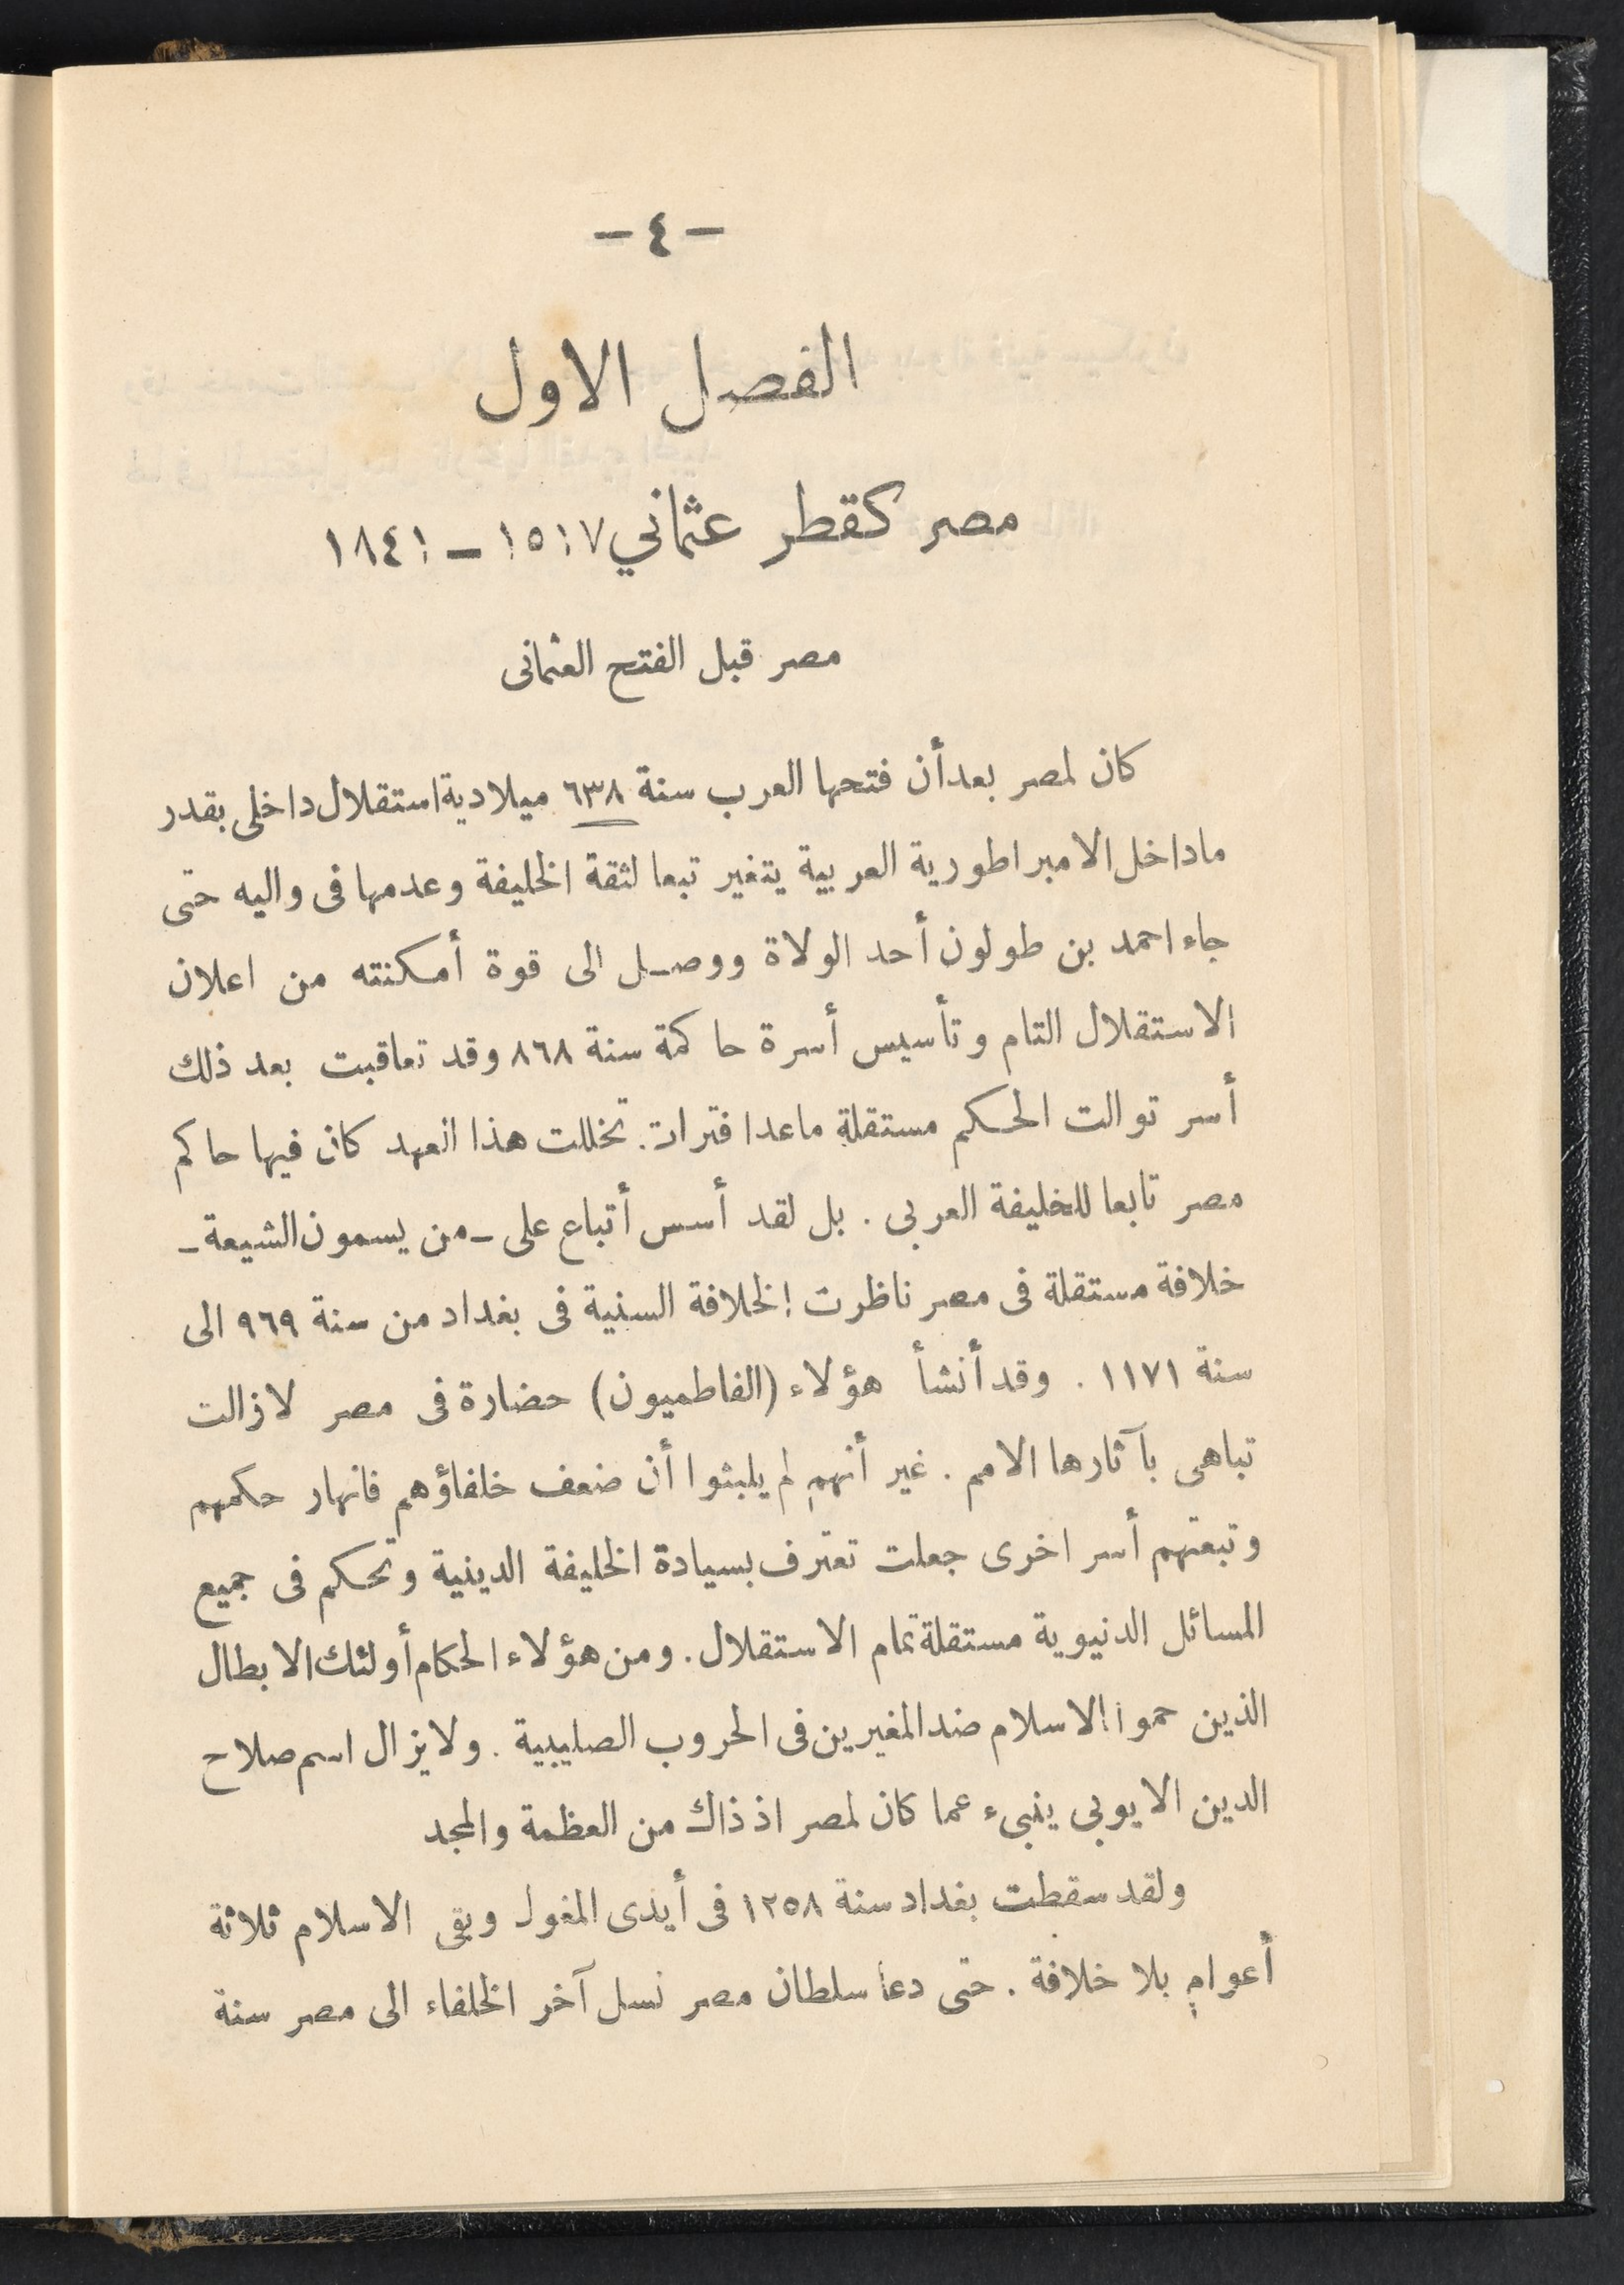 — ٤ —
الفصل الاول
مصر كقطر عثماني ١٥١٧ — ١٨٤١
مصر قبل الفتح العثمانى
كان لمصر بعد أن فتحها العرب سنة ٦٣٨ ميلادية استقلال داخلى بقدر
ماداخل الامبراطورية العربية يتغير تبعا لثقة الخليفة وعدمها فى واليه حتى
جاء احمد بن طولون أحد الولاة ووصل الى قوة أمكنته من اعلان
الاستقلال التام وتأسيس أسرة حاكمة سنة ٨٦٨ وقد تعاقبت بعد ذلك
أسر توالت الحكم مستقلة ماعدا فترات تخللت هذا العهد كان فيها حاكم
مصر تابعا للخليفة العربى . بل لقد أسس أتباع على ـ من يسمون الشيعة ـ
خلافة مستقلة فى مصر ناظرت الخلافة السنية فى بغداد من سنة ٩٦٩ الى
سنة ١١٧١ . وقد أنشأ هؤلاء (الفاطميون) حضارة فى مصر لازالت
تباهى بآثارها الامم . غير أنهم لم يلبثوا أن ضعف خلفاؤهم فانهار حكمهم
وتبعتهم أسر اخرى جعلت تعترف بسيادة الخليفة الدينية وتحكم فى جميع
المسائل الدنيوية مستقلة تمام الاستقلال . ومن هؤلاء الحكام أولئك الابطال
الذين حموا الاسلام ضد المغيرين فى الحروب الصليبية . ولايزال اسم صلاح
الدين الايوبى ينبىء عما كان لمصر اذ ذاك من العظمة والمجد
ولقد سقطت بغداد سنة ١٢٥٨ فى أيدى المغول وبقى الاسلام ثلاثة
أعوام بلا خلافة . حتى دعا سلطان مصر نسل آخر الخلفاء الى مصر سنة